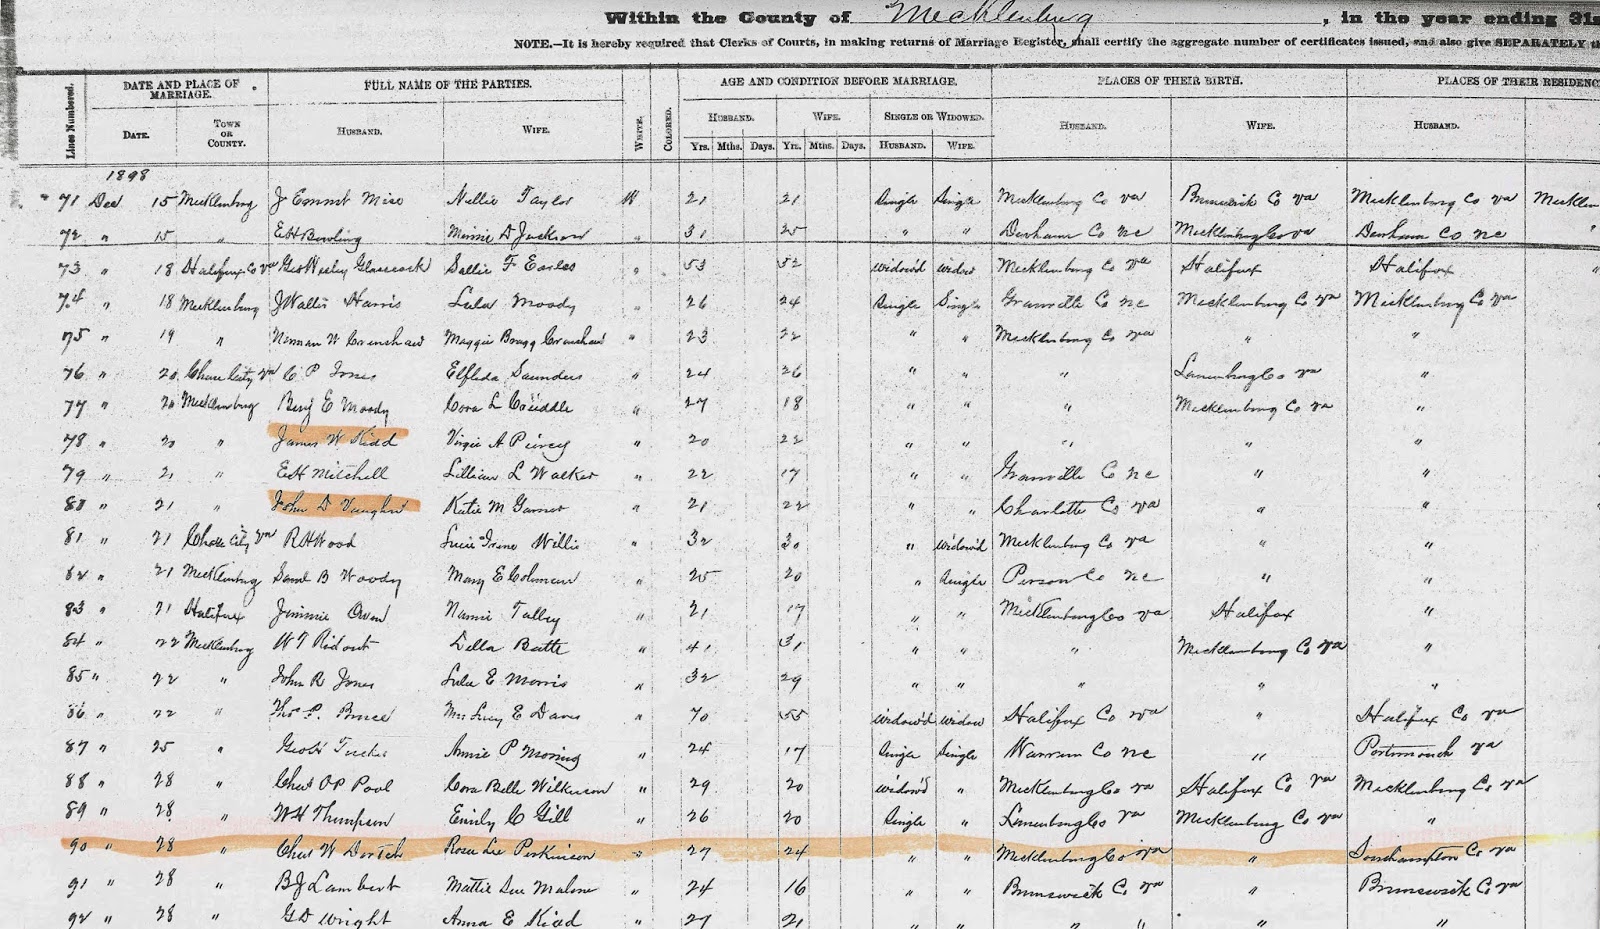 Within the County of Mecklenburg, in the year ending 31s
NOTE.—It is hereby required that Clerks of Courts, in making returns of Marriage Register, shall certify the aggregate number of certificates issued, and also give SEPARATELY th
Lines Numbered. DATE AND PLACE OF MARRIAGE. FULL NAME OF THE PARTIES. WHITE. COLORED. AGE AND CONDITION BEFORE MARRIAGE. PLACES OF THEIR BIRTH. PLACES OF THEIR RESIDENC
DATE. TOWN OR COUNTY. HUSBAND. WIFE. HUSBAND. WIFE. SINGLE OR WIDOWED. HUSBAND. WIFE. HUSBAND.
Yrs. Mths. Days. Yrs. Mths. Days. HUSBAND. WIFE.
1898
71 Dec 15 Mecklenburg J Emmet Mise Nellie Taylor W 21 21 Single Single Mecklenburg Co va Brunswick Co va Mecklenburg Co va Mecklen
72 " 15 " E H Bowling Minnie D Jackson " 31 25 " " Durham Co nc Mecklenburg Co va Durham Co nc "
73 " 18 Halifax Co va Geo Wesley Glasscock Sallie F Earles " 53 52 widow'd widow Mecklenburg Co va Halifax Halifax "
74 " 18 Mecklenburg J Wallis Harris Lula Moody " 26 24 Single Single Granville Co nc Mecklenburg Co va Mecklenburg Co va
75 " 19 " Norman W Crenshaw Maggie Bragg Crenshaw " 23 22 " " Mecklenburg Co va " "
76 " 20 Chase City va C P Jones Elfleda Saunders " 24 26 " " " Lunenburg Co va "
77 " 20 Mecklenburg Benj E Moody Cora L Criddle " 27 18 " " " Mecklenburg Co va "
78 " 20 " James W Kidd Virgie A Piercy " 20 22 " " " " "
79 " 21 " E H Mitchell Lillian L Walker " 22 17 " " Granville Co nc " "
80 " 21 " John D Vaughn Katie M Garner " 21 22 " " Charlotte Co va " "
81 " 21 Chase City va R H Wood Lucie Irene Willis " 32 30 " widow'd Mecklenburg Co va " "
82 " 21 Mecklenburg Saml B Woody Mary E Coleman " 25 20 " Single Person Co nc " "
83 " 21 Halifax Jimmie Owen Nannie Talley " 21 17 " " Mecklenburg Co va Halifax "
84 " 22 Mecklenburg W T Ridout Della Butte " 41 31 " " " Mecklenburg Co va "
85 " 22 " John R Jones Lulu E Morris " 32 29 " " " " "
86 " 22 " Thos P. Bruce Mrs Lucy E Davis " 70 55 widow'd widow Halifax Co va " Halifax Co va
87 " 25 " Geo H Tucker Annie P Moring " 24 17 Single Single Warren Co nc " Portsmouth va
88 " 28 " Chas O P Pool Cora Belle Wilkerson " 29 20 widow'd " Mecklenburg Co va Halifax Co va Mecklenburg Co va
89 " 28 " W H Thompson Emily C Gill " 26 20 Single " Lunenburg Co va Mecklenburg Co va "
90 " 28 " Chas W Dortch Rosa Lee Perkinson " 27 24 " " Mecklenburg Co va " Southampton Co va
91 " 28 " B J Lambert Mattie Sue Malone " 24 16 " " Brunswick Co va " Brunswick Co va
92 " 28 " G D Wright Anna E Kidd " 27 21 " " " " "